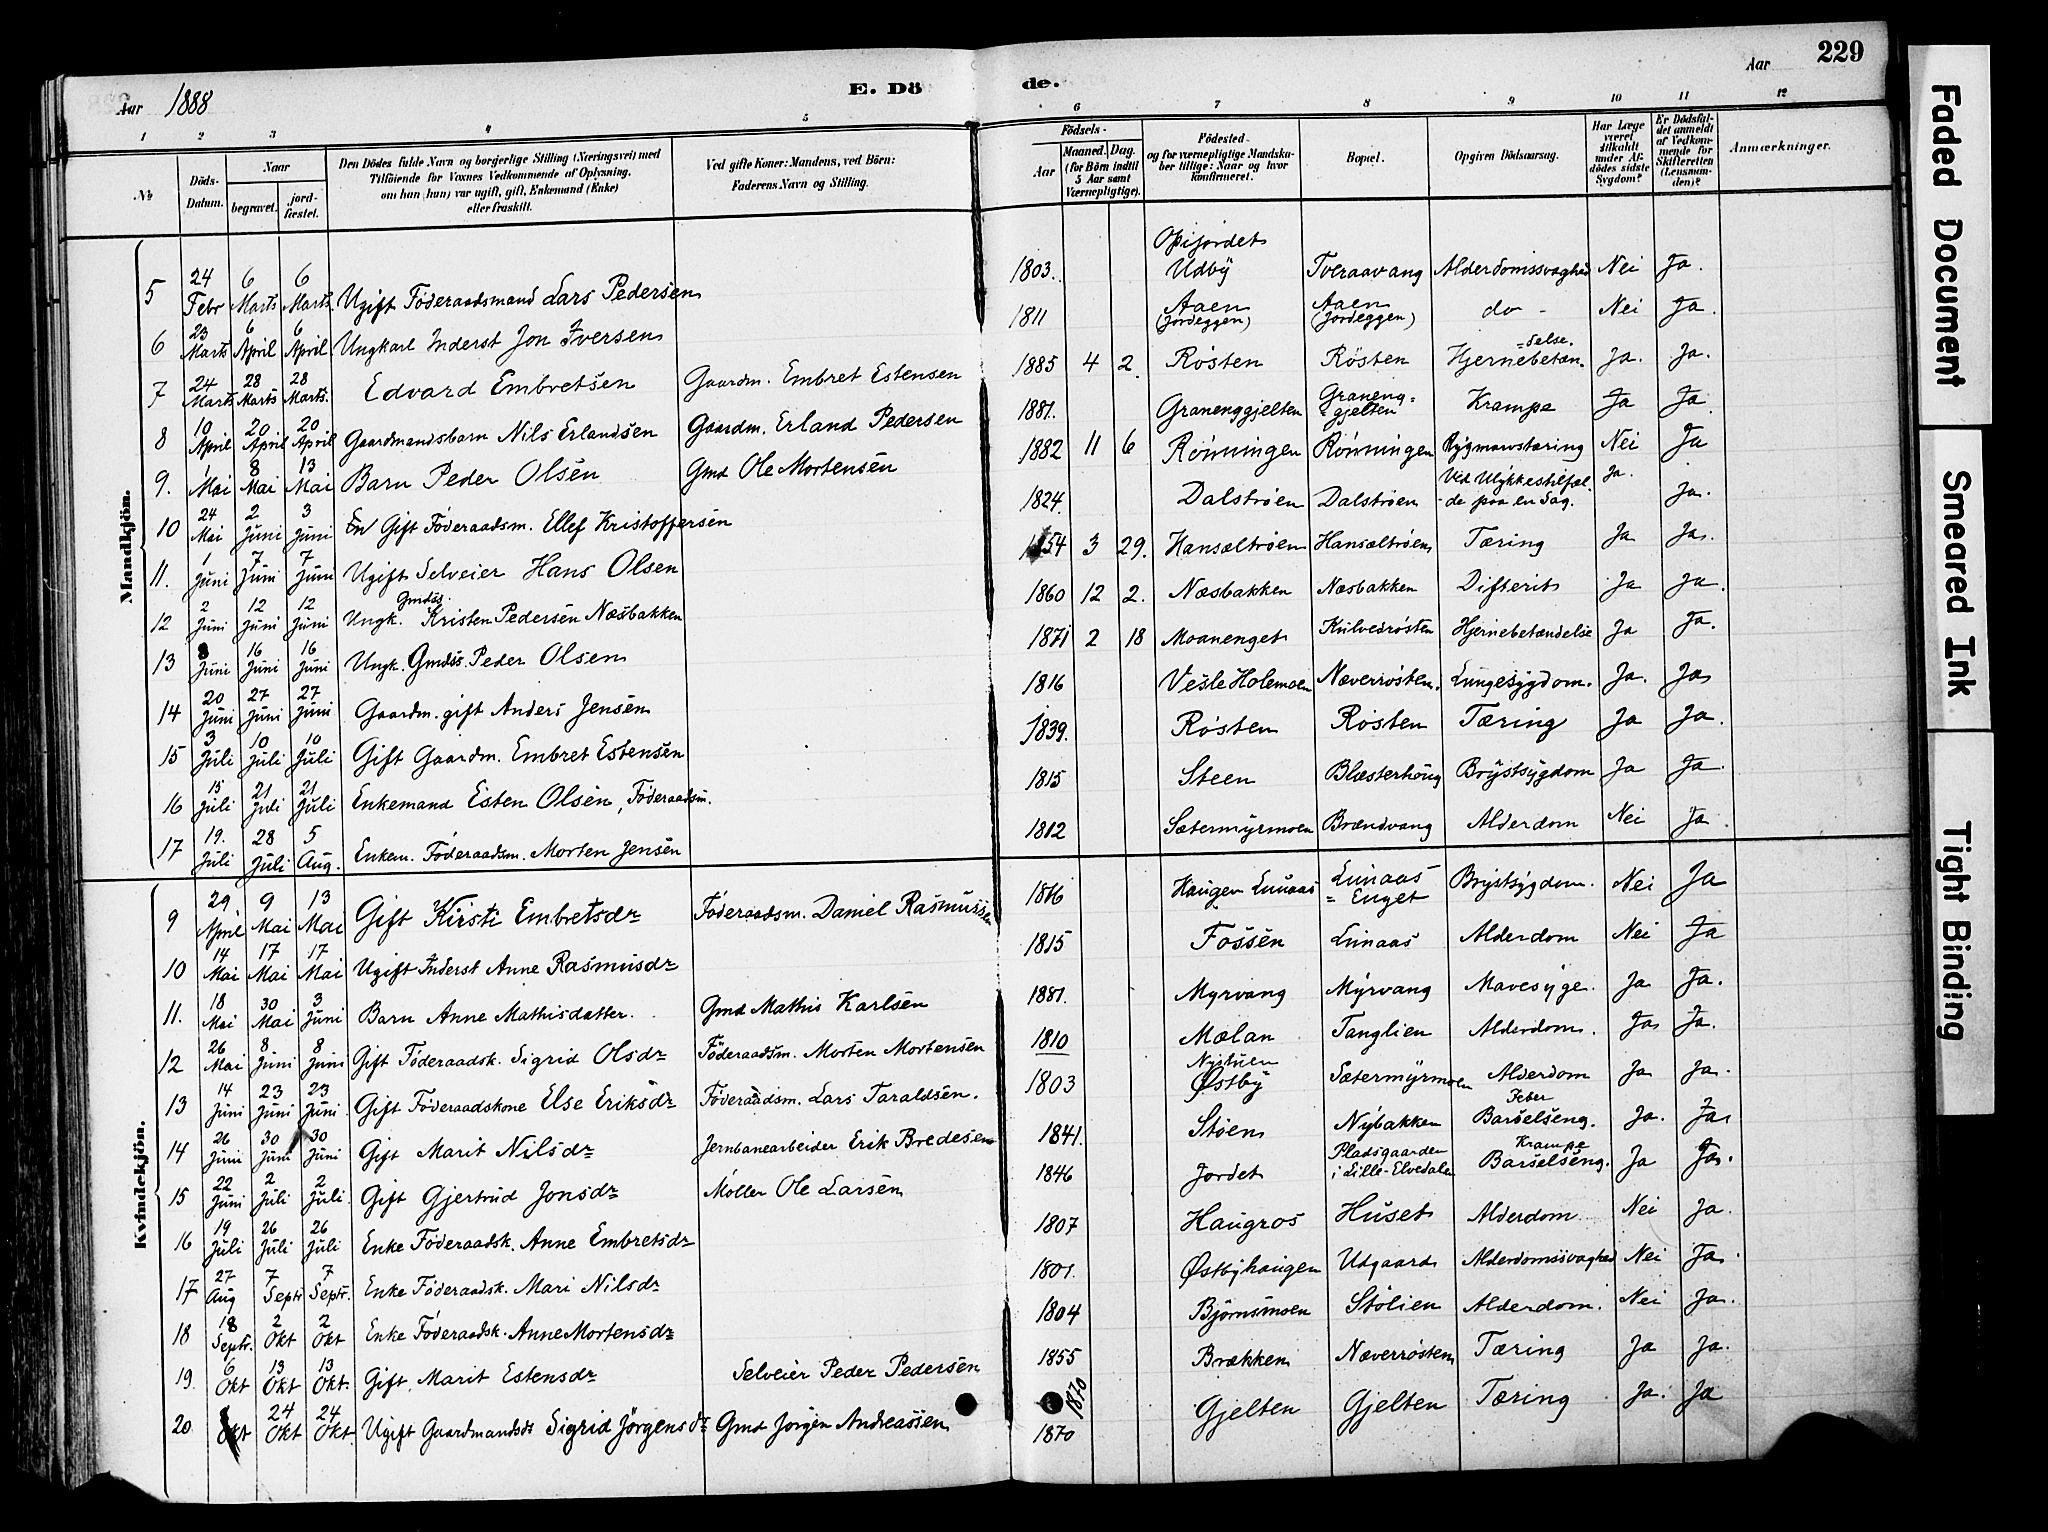 Aar 1888
E. Dö
de.
Aar
229
1 2 3 4 5 6 7 8 9 10 11 12
No
Döds-Datum.
Naar
begravet.
jord-fæstet.
Den Dödes fulde Navn og borgerlige Stilling (Næringsvei) med
Tilföiende for Voxnes Vedkommende af Oplysning,
om han (hun) var ugift, gift, Enkemand (Enke)
eller fraskilt.
Ved gifte Koner: Mandens, ved Börn:
Faderens Navn og Stilling.
Födsels-
Aar
Maaned.
Dag.
(for Börn indtil
5 Aar samt
Værnepligtige).
Födested
og for værnepligtige Mandska-
ber tillige: Naar og hvor
konfirmeret.
Bopæl.
Opgiven Dödsaarsag.
Har Læge
været
tilkaldt
under Af-
dödes sidste
Sygdom?
Er Dödsfal-
det anmeldt
af Vedkom-
mende for
Skifteretten
(Lensman-
den)?
Anmærkninger.
Mandkjön.
5 24 Febr 6 Marts 6 Marts. Ugift Föderaadsmand Lars Pedersen 1803. Udby Tveraavang Alderdomssvaghed Nei Ja.
6 23 Marts 6 April 6 April. Ungkarl Inderst Jon Iversen 1811 Aaen (Jordeggen) Aaen (Jordeggen) do - Nei Ja.
7 24 Marts 28 Marts 28 Marts. Edvard Embretsen Gaardm. Embret Estensen 1885 4 2. Rösten Rösten Hjernebetæn-delse. Ja. Ja.
8 10 April 20 April 20 April Gaardmandsbarn Nils Erlandsen Gaardm. Erland Pedersen 1881. Granenggjelten Graneng-gjelten Krampe Ja Ja.
9. 1 Mai 8 Mai 13 Mai Barn Peder Olsen Gmd Ole Mortensen 1882 11 6 Rönningen Rönningen Rygmarvstæring Nei Ja
10 24 Mai 2 Juni 3 Juni Gift Föderaadsm. Ellef Kristoffersen 1824. Dalströen Dalströen Ved Ulykkestilfæl-de paa en Sag. Ja. Ja.
11. 1 Juni 7 Juni 7 Juni Ugift Selveier Hans Olsen 1854 3 29. Hansæltröen Hansæltröen Tæring Ja Ja.
12 2 Juni 12 Juni 12 Juni Ungk. Gmdss. Kristen Pedersen Næsbakken 1860 12 2. Næsbakken Næsbakken Difterit Ja Ja.
13 8 Juni 16 Juni 16 Juni Ungk. Gmdss. Peder Olsen 1871 2 18 Moanenget Kulvedrösten Hjernebetændelse Ja Ja.
14 20 Juni 27 Juni 27 Juni Gaardm. gift Anders Jensen 1816 Vesle Holemoen Næverrösten. Lungesygdom. Ja. Ja
15 3 Juli 10 Juli 10 Juli Gift Gaardm. Embret Estensen 1839. Rösten Rösten Tæring Ja Ja.
16 15 Juli 21 Juli 21 Juli Enkemand Esten Olsen, Föderaadsm. 1815 Steen Blæsterhoug Brystsygdom Ja Ja.
17 19. Juli 28 Juli 5 Aug. Enkem. Föderaadsm. Morten Jensen 1812 Sætermyrmoen Brændvang Alderdom Nei Ja.
Kvindekjön.
9 29 April 9 Mai 13 Mai Gift Kirsti Embretsdr Föderaadsm. Daniel Rasmussen 1816 Haugen Lunaas Lunaas-Enget Brystsygdom. Nei Ja
10 14 Mai 17 Mai 17 Mai Ugift Inderst Anne Rasmusdr 1815 Fossen Lunaas Alderdom Nei Ja
11. 18 Mai 30 Mai 3 Juni Barn Anne Mathisdatter. Gmd Mathis Karlsen 1881. Myrvang Myrvang Mavesyge. Ja Ja.
12 26 Mai 8 Juni 8 Juni Gift Föderaadsk. Sigrid Olsdr Föderaadsm. Morten Mortensen 1810 Mælan Tanglien Alderdom. Ja Ja.
13 14 Juni 23 Juni 23 Juni. Gift Föderaadskone Else Eriksdr Föderaadsm. Lars Taraldsen. 1803 Nystuen Östby Sætermyrmoen Alderdom Ja Ja.
14 26 Juni 30 Juni 30 Juni Gift Marit Nilsdr Jernbanearbeider Erik Bredesen 1841. Stöen Nybakken Barselseng. Feber Ja. Ja
15 22 Juni 2 Juli 2 Juli. Gift Gjertrud Jonsdr Möller Ole Larsen 1846 Jordet Pladsgaarden i Lille-Elvedalen Krampe Barselseng. Ja Ja.
16 19 Juli 26 Juli 26 Juli Enke Föderaadsk. Anne Embretsdr 1807 Haugros Huset Alderdom Nei Ja.
17 27 Aug 7 Septr 7 Septr. Enke Föderaadsk. Mari Nilsdr 1801. Östbyhaugen Udgaard Alderdomssvaghed Nei Ja.
18 18 Septr. 2 Okt 2 Okt Enke Föderaadsk. Anne Mortensdr 1804 Björnsmoen Stölien Alderdom. Nei Ja.
19. 6 Okt 13 Okt 13 Okt. Gift Marit Estensdr Selveier Peder Pedersen 1855 Brækken Næverrösten Tæring Ja Ja.
20 Okt 24 Okt 24 Okt. Ugift Gaardmandsds Sigrid Jörgensdr Gmd Jörgen Andreassen 1870 1870 Gjelten Gjelten Tæring Ja. Ja
Faded Document
Smeared Ink
Tight Binding